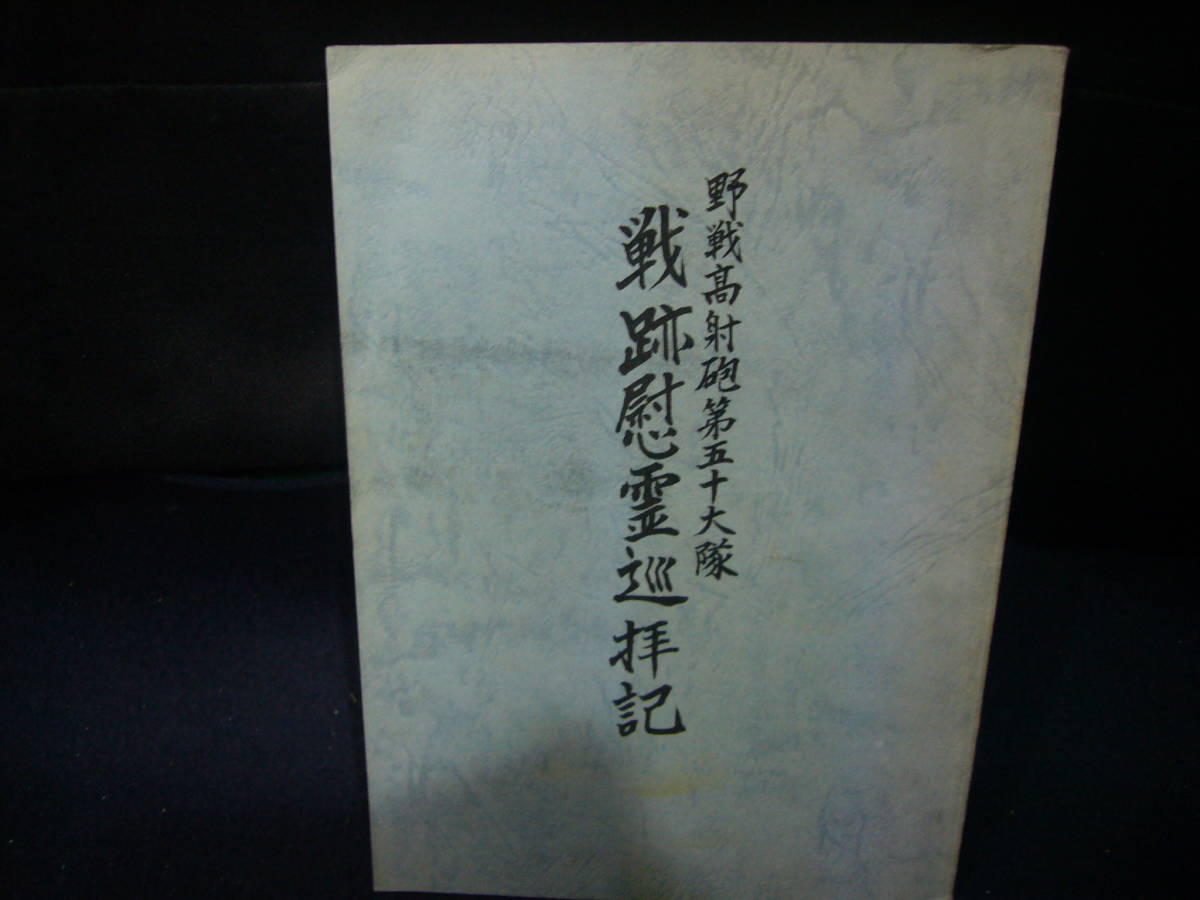 野戦髙射砲第五十大隊
戦跡慰霊巡拝記